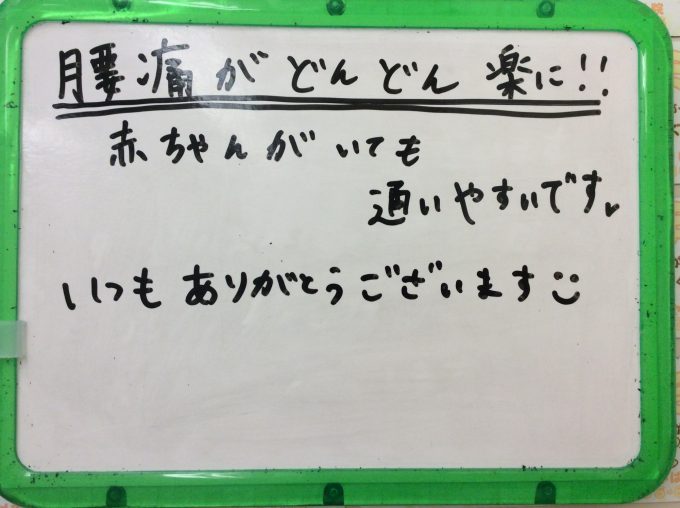 腰痛がどんどん楽に!!
赤ちゃんがいても
通いやすいです
いつもありがとうございます